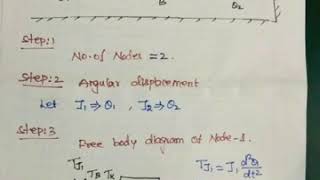 B θ₂
Step:1
No. of Nodes = 2.
Step:2 Angular displacement
Let J₁ ⇒ θ₁, J₂ ⇒ θ₂
Step:3
Free body diagram of Node-1.
TJ₁ TJ₁ = J₁ d²θ₁/dt²
TB TK